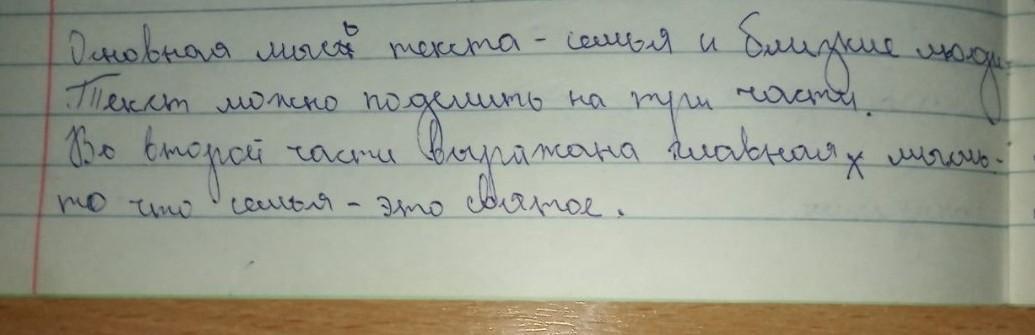 Основная мысль текста - семья и близкие люди.
Текст можно поделить на три части.
Во второй части выражана главная мысль -
то что семья - это святое.